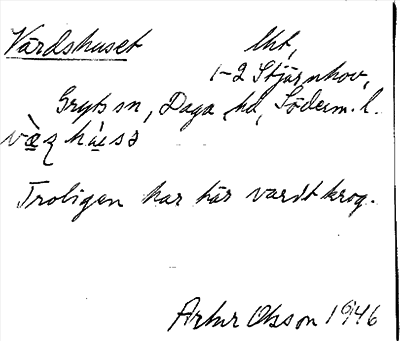 Värdshuset lht,
1-2 Stjärnhov,
Gryts sn, Daga hd, Söderm. l.
Troligen har här varit krog.
Artur Olsson 1946